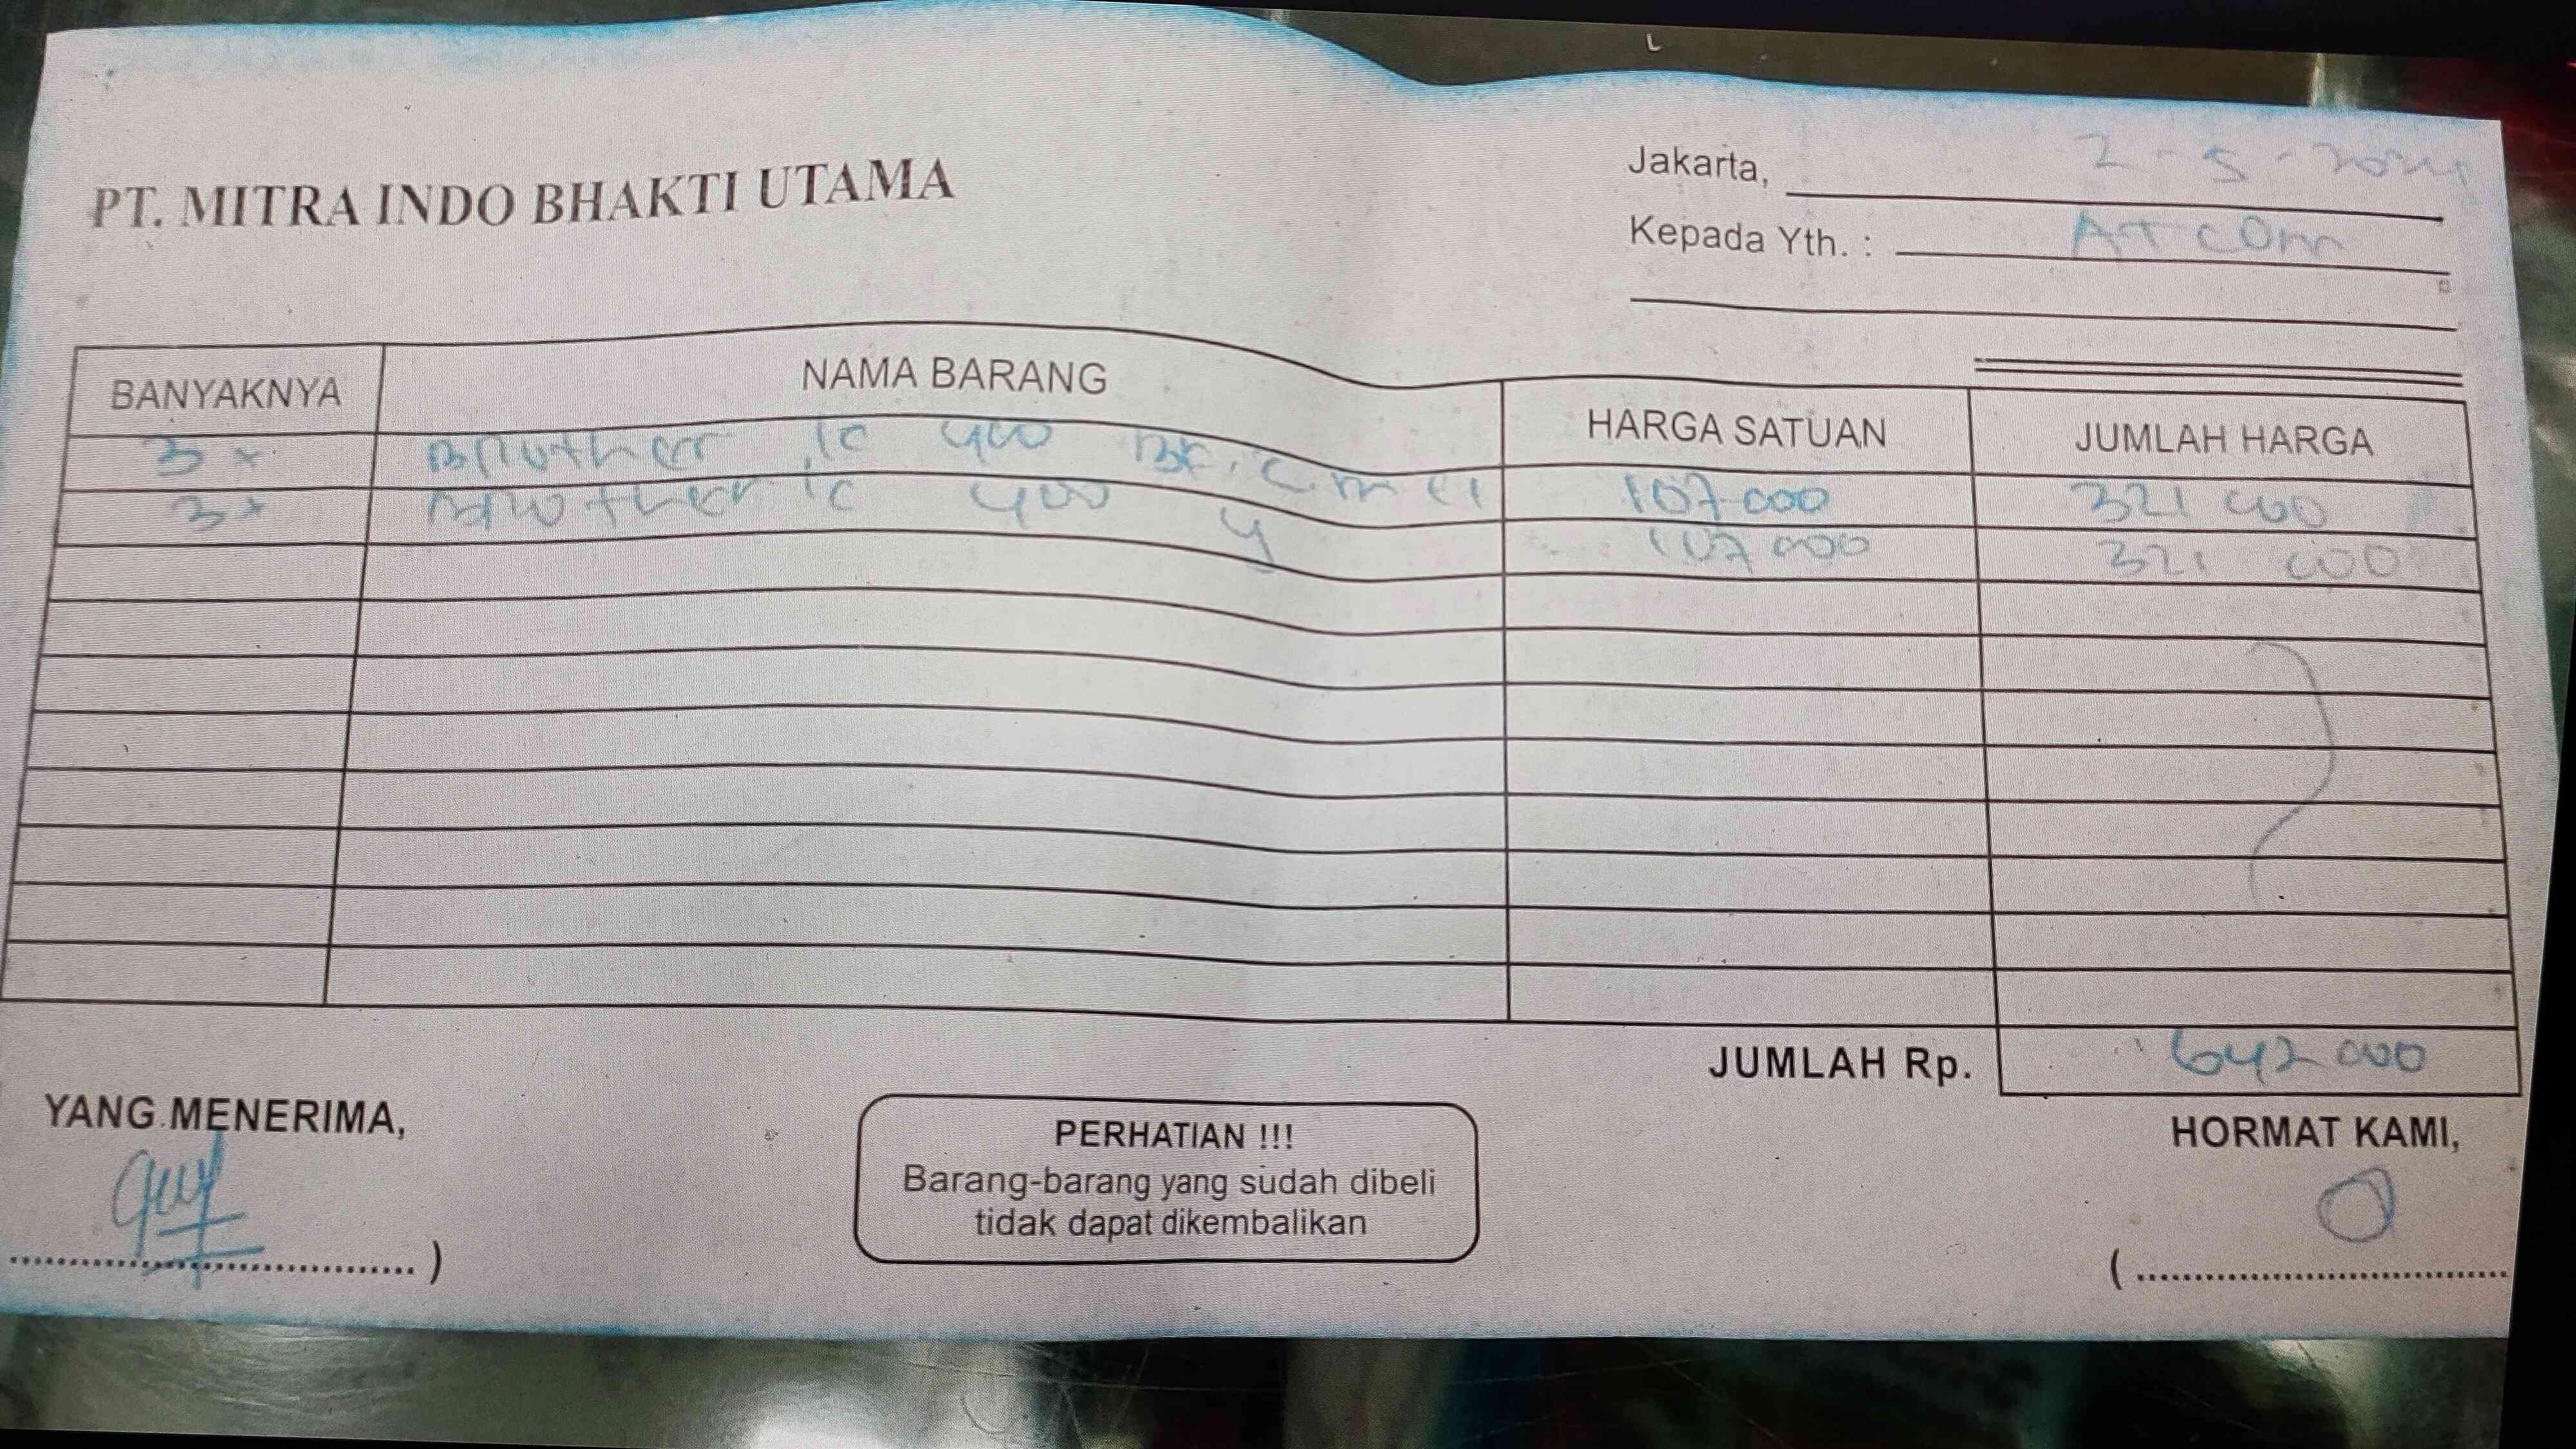 PT. MITRA INDO BHAKTI UTAMA
Jakarta, 2-5-2024
Kepada Yth. : AT COM
BANYAKNYA NAMA BARANG HARGA SATUAN JUMLAH HARGA
3 x Brother ic 400 BK. C. m 107 000 321 000
3 x Brother ic 400 y 107 000 321 000
JUMLAH Rp. 642 000
YANG MENERIMA,
PERHATIAN !!!
Barang-barang yang sudah dibeli
tidak dapat dikembalikan
HORMAT KAMI,